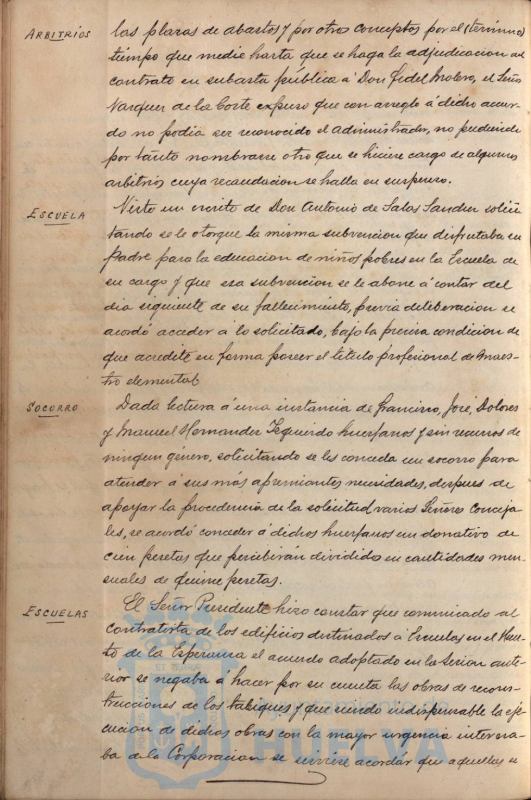 ARBITRIOS
las plazas de abastos y por otros conceptos por el (termino)
tiempo que medie hasta que se haga la adjudicacion del
contrato en subasta pública á Don Fidel Molero, el Señor
Vazquez de la Corte expuso que con arreglo á dicho acuer-
do no podia ser reconocido el administrador, no pudiendo
por tanto nombrarse otro que se hiciese cargo de algunos
arbitrios cuya recaudacion se halla en suspenso.
ESCUELA
Visto un escrito de Don Antonio de Salas Sandez solici-
tando se le otorgue la misma subvencion que disfrutaba su
Padre para la educacion de niños pobres en la Escuela de
su cargo y que esa subvencion se le abone á contar del
dia siguiente de su fallecimiento, previa deliberacion se
acordó acceder á lo solicitado, bajo la precisa condicion de
que acredite en forma poseer el titulo profesional de Maes-
tro elemental.
SOCORRO
Dada lectura á una instancia de Francisco, José, Dolores
y Manuel Hernandez Izquierdo huerfanos y sin recursos de
ningun género, solicitando se les conceda un socorro para
atender á sus más apremiantes necesidades, despues de
apoyar la procedencia de la solicitud varios Señores Conceja-
les, se acordó conceder á dichos huerfanos un donativo de
cien pesetas que percibirán dividido en cantidades men-
suales de quince pesetas.
ESCUELAS
El Señor Presidente hizo constar que comunicado al
contratista de los edificios destinados á Escuelas en el Huer-
to de la Esperanza el acuerdo adoptado en la Sesion ante-
rior se negaba á hacer por su cuenta las obras de recons-
trucciones de los tabiques y que siendo indispensable la eje-
cucion de dichas obras con la mayor urgencia interesa-
ba de la Corporacion se sirviese acordar que aquellas se
HUELVA